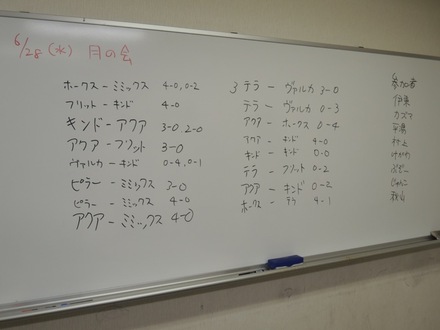 6/28 (水) 月の会
ホークス - ミミックス 4-0, 0-2
フリット - キンド 4-0
キンド - アクア 3-0 2-0
アクア - フリット 3-0
ヴァルカ - キンド 0-4, 0-1
ピラー - ミミックス 3-0
ピラー - ミミックス 4-0
アクア - ミミックス 4-0
3 テラ - ヴァルカ 3-0
テラ - ヴァルカ 0-3
アクア - ホークス 0-4
アクア - キンド 4-0
キンド - キンド 0-0
テラ - フリット 0-2
アクア - キンド 0-2
ホークス - テラ 4-1
参加者
伊東
カズマ
平湯
村上
みかわ
よぞー
じゃっこ
秋山